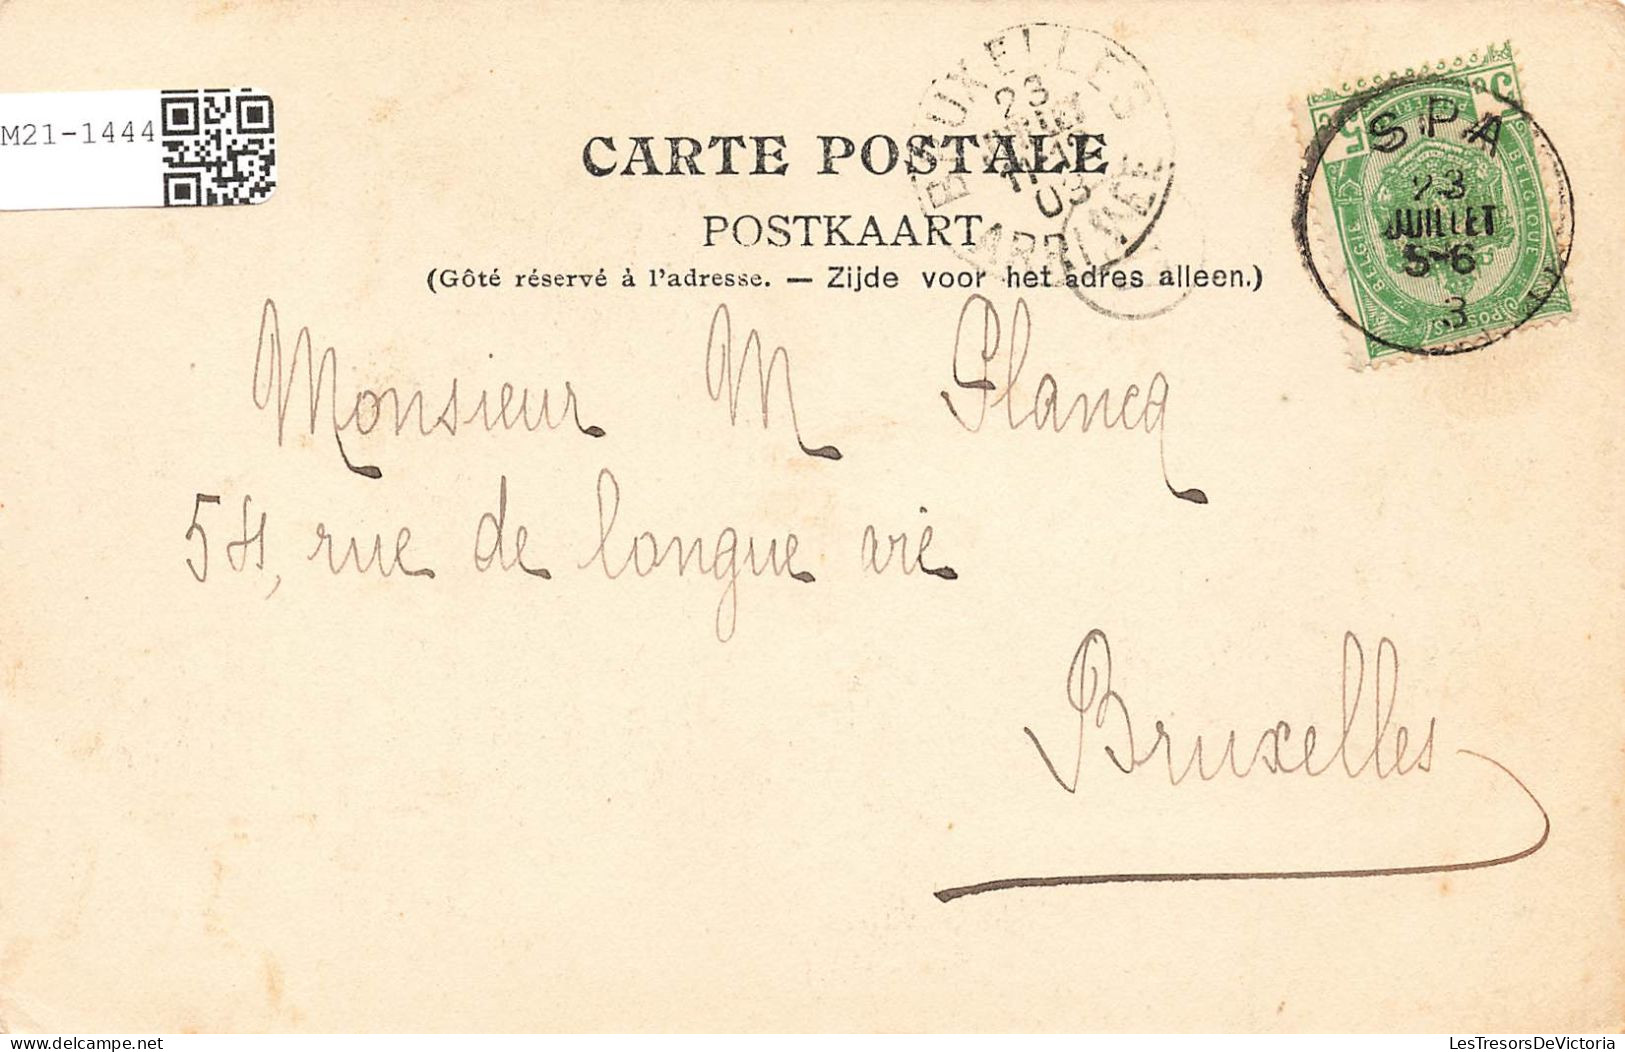 M21-1444
CARTE POSTALE
POSTKAART
(Gôté réservé à l'adresse. — Zijde voor het adres alleen.)
BRUXELLES
23
03
ARRIVÉE
SPA
23
JUILLET
5-6
3
5 5
BELGIQUE
BELGIE
POSTES
Monsieur M Plancq
54, rue de longue vie
Bruxelles
LesTresorsDeVictoria
delcampe.net